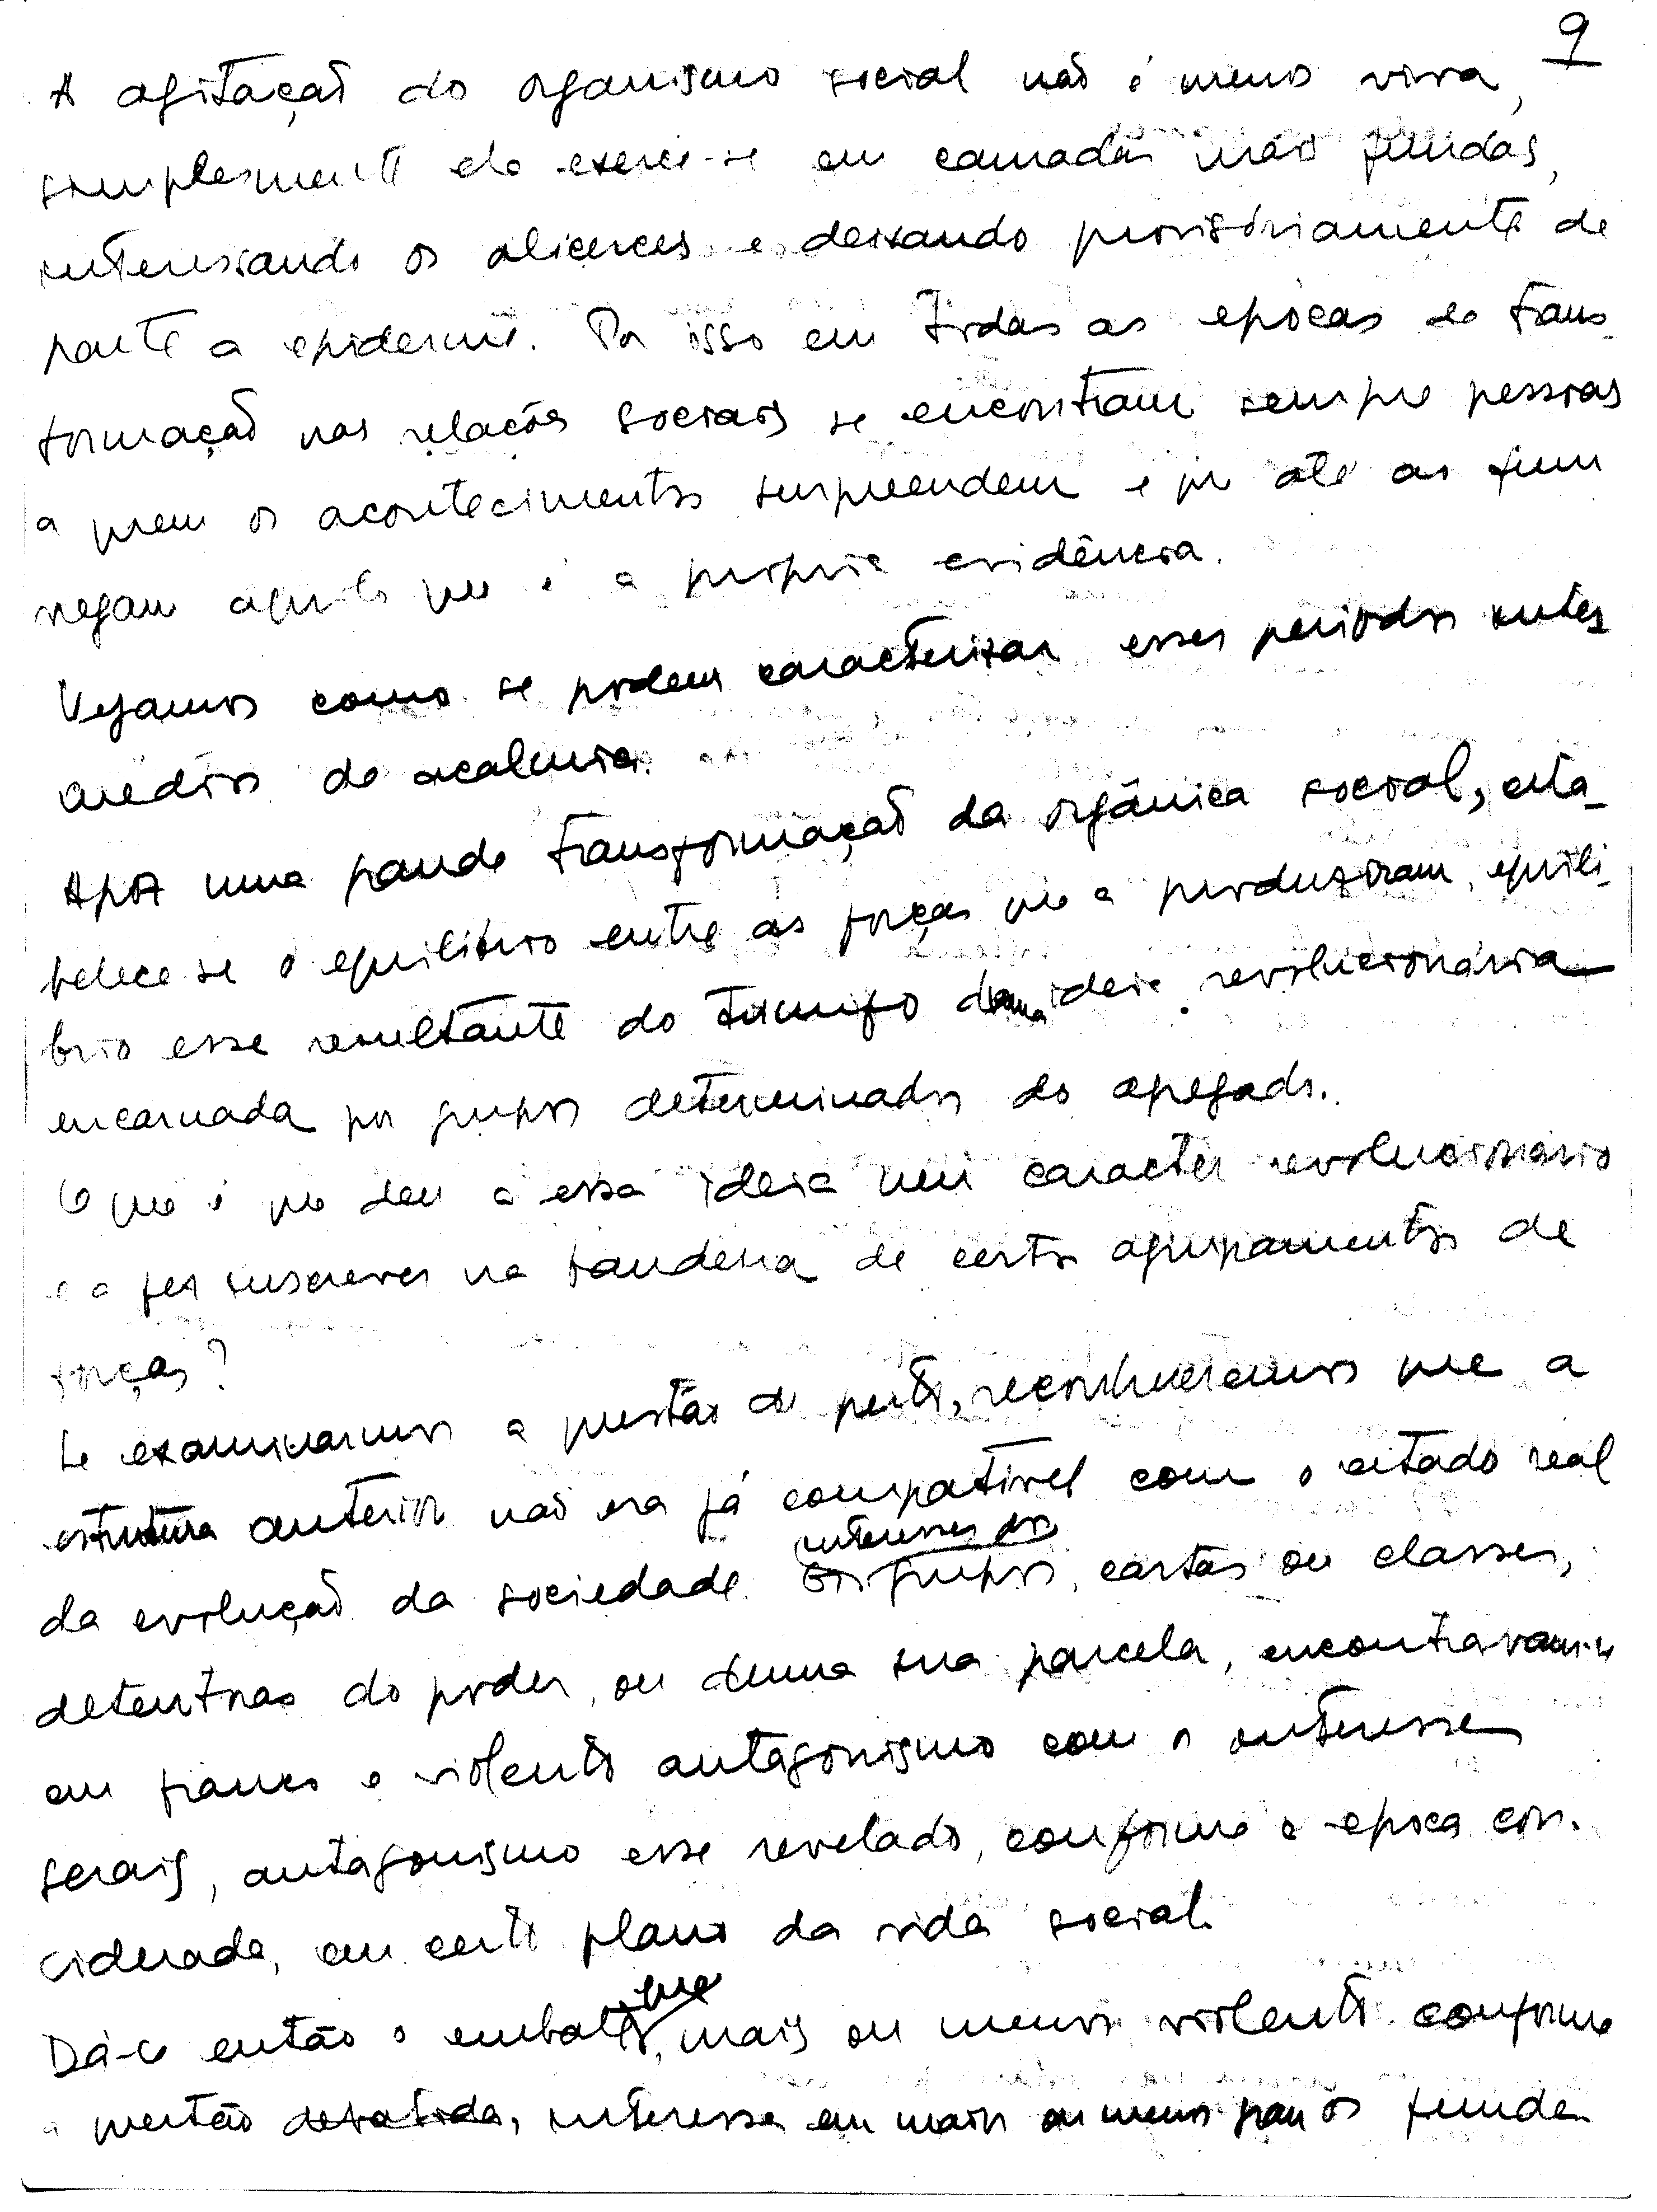 9
A agitação do organismo social não é menos viva,
simplesmente ela exerce-se em camadas mais fundas,
interessando os alicerces e deixando provisóriamente de
parte a epiderme. Por isso em todas as epocas de trans-
formação nas relações sociais se encontram sempre pessoas
a quem os acontecimentos surpreendem e que até ao fim
negam aquilo que é a propria evidência.
Vejamos como se podem caracterizar esses periodos inter
médios de acalmia.
Após uma grande transformação da orgânica social, esta-
belece-se o equilibrio entre as forças que a produziram, equili-
brio esse resultante do triunfo duma ideia revolucionária
encarnada por grupos determinados do agregado.
O que é que deu a essa ideia um caracter revolucionário
e a fez inscrever na bandeira de certos agrupamentos de
forças?
Se examinarmos a questão de perto, reconheceremos que a
estrutura anterior não era já compativel com o estado real
interesses dos
da evolução da sociedade. Os grupos, castas ou classes,
detentoras do poder, ou duma sua parcela, encontravam-se
em franco e violento antagonismo com os interesses
gerais, antagonismo esse revelado, conforme a epoca con-
siderada, em certo plano da vida social.
que
Dá-se então o embate, mais ou menos violento conforme
a questão debatida, interessa em mais ou menos grau os funda-